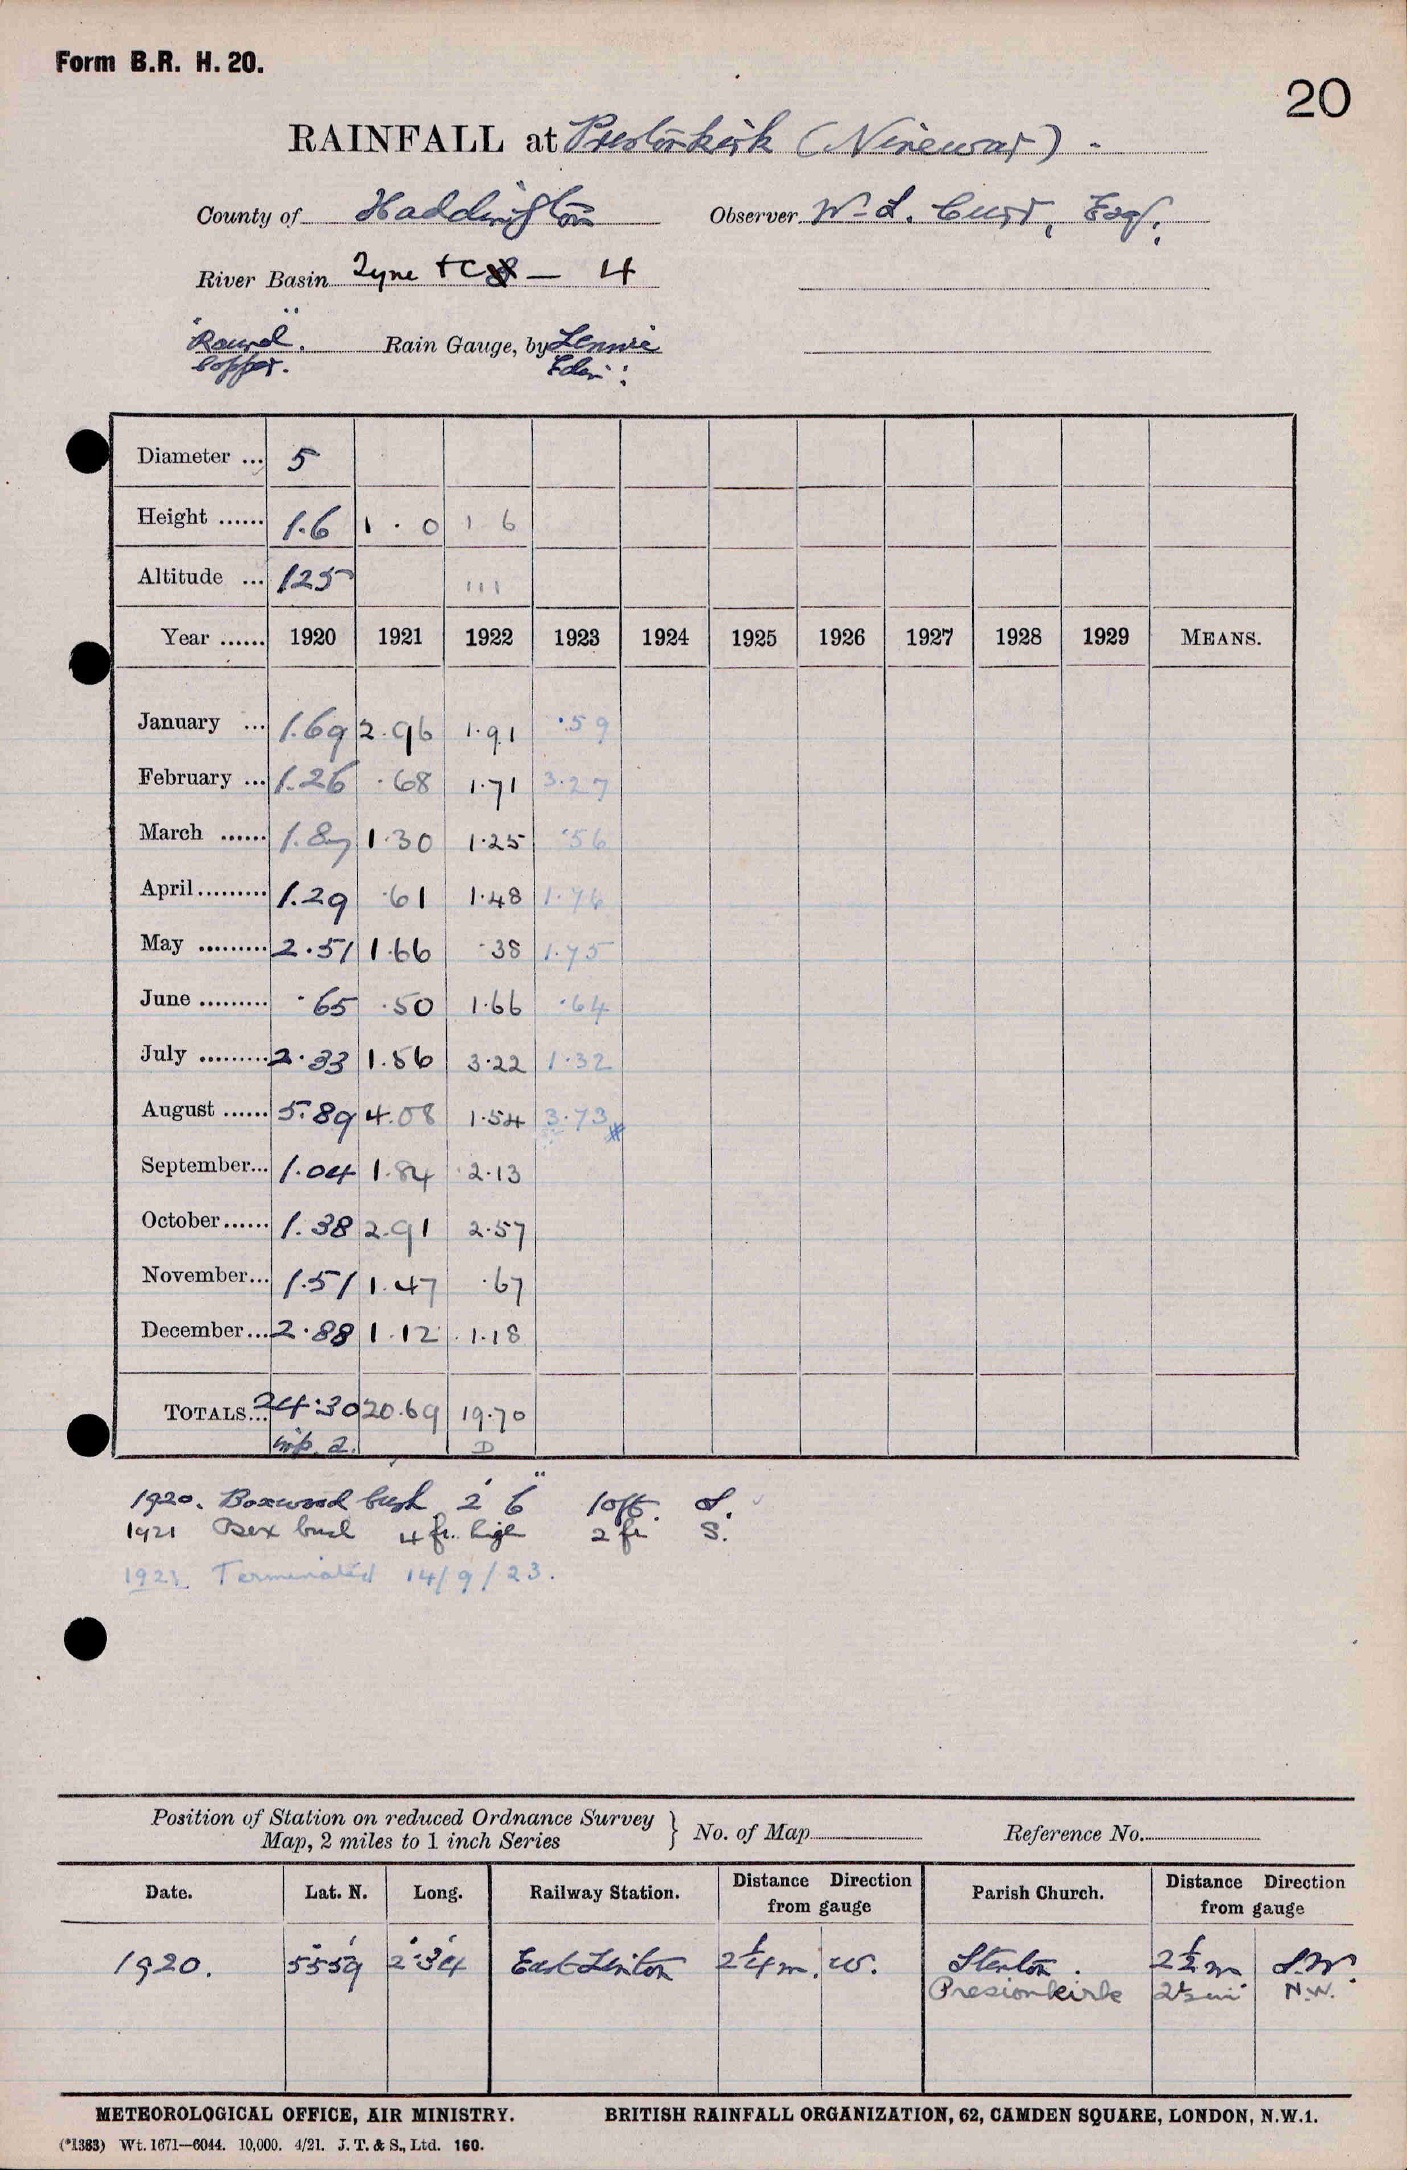 Form B.R. H. 20.
20
RAINFALL at Prestonkirk (Ninewar) -
County of Haddington Observer W. L. Curr, Esq.
River Basin Tyne + C — 4
"Round" Copper. Rain Gauge, by Lennie Edin:
Diameter ... 5
Height ...... 1.6 1 . 0 1 6
Altitude ... 125 111
Year ...... 1920 1921 1922 1923 1924 1925 1926 1927 1928 1929 MEANS.
January ... 1.69 2.96 1.91 .59
February ... 1.26 .68 1.71 3.27
March ...... 1.87 1.30 1.25 .56
April......... 1.29 .61 1.48 1.76
May ......... 2.51 1.66 .38 1.75
June ......... .65 .50 1.66 .64
July ......... 2.33 1.56 3.22 1.32
August ...... 5.89 4.08 1.54 3.73
September... 1.04 1.84 2.13
October...... 1.38 2.91 2.57
November... 1.51 1.47 .67
December... 2.88 1.12 1.18
TOTALS... 24.30 20.69 19.70
D
1920. Boxwood bush 2' 6" 10ft. S.
1921 Box bush 4 ft. high 2 ft S.
1923 Terminated 14/9/23.
Position of Station on reduced Ordnance Survey Map, 2 miles to 1 inch Series } No. of Map Reference No.
Date. Lat. N. Long. Railway Station. Distance Direction from gauge Parish Church. Distance Direction from gauge
1920. 55°59' 2°34' East Linton 2¼ m. W. Stenton. 2½ m S.W.
Prestonkirk 2½ mi N.W.
METEOROLOGICAL OFFICE, AIR MINISTRY. BRITISH RAINFALL ORGANIZATION, 62, CAMDEN SQUARE, LONDON, N.W.1.
(*1383) Wt. 1671—6044. 10,000. 4/21. J. T. & S., Ltd. 160.